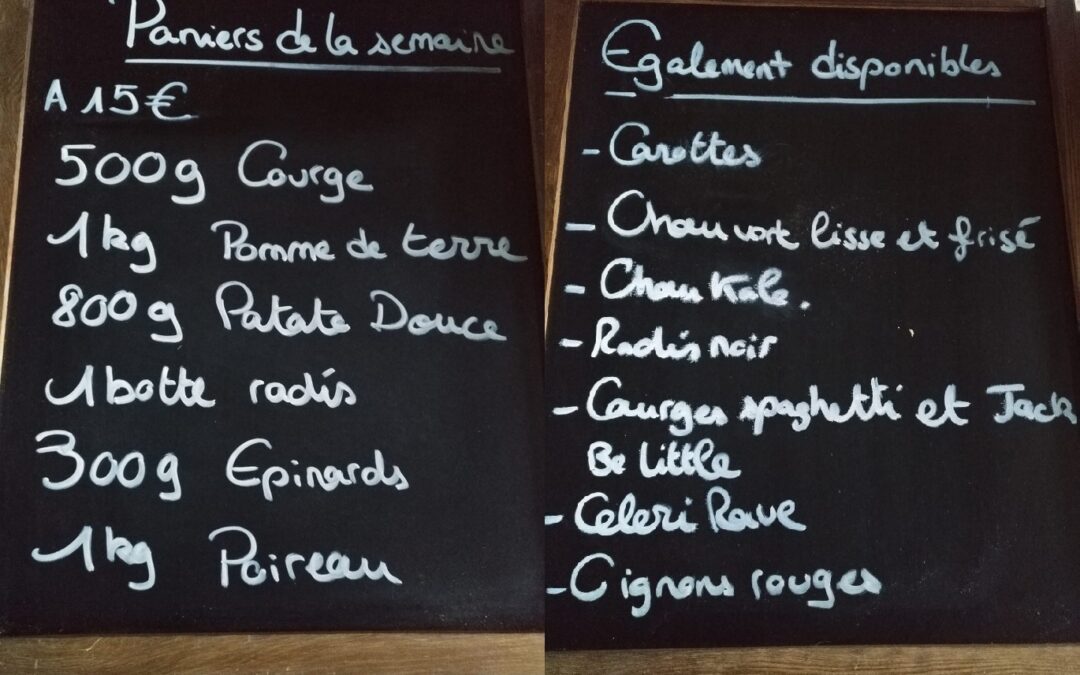 Paniers de la semaine
A 15€
500g Courge
1kg Pomme de terre
800g Patate Douce
1 botte radis
300g Epinards
1kg Poireau
Egalement disponibles
- Carottes
- Chou vert lisse et frisé
- Chou Kale.
- Radis noir
- Courges spaghetti et Jack
Be Little
- Celeri Rave
- Oignons rouges